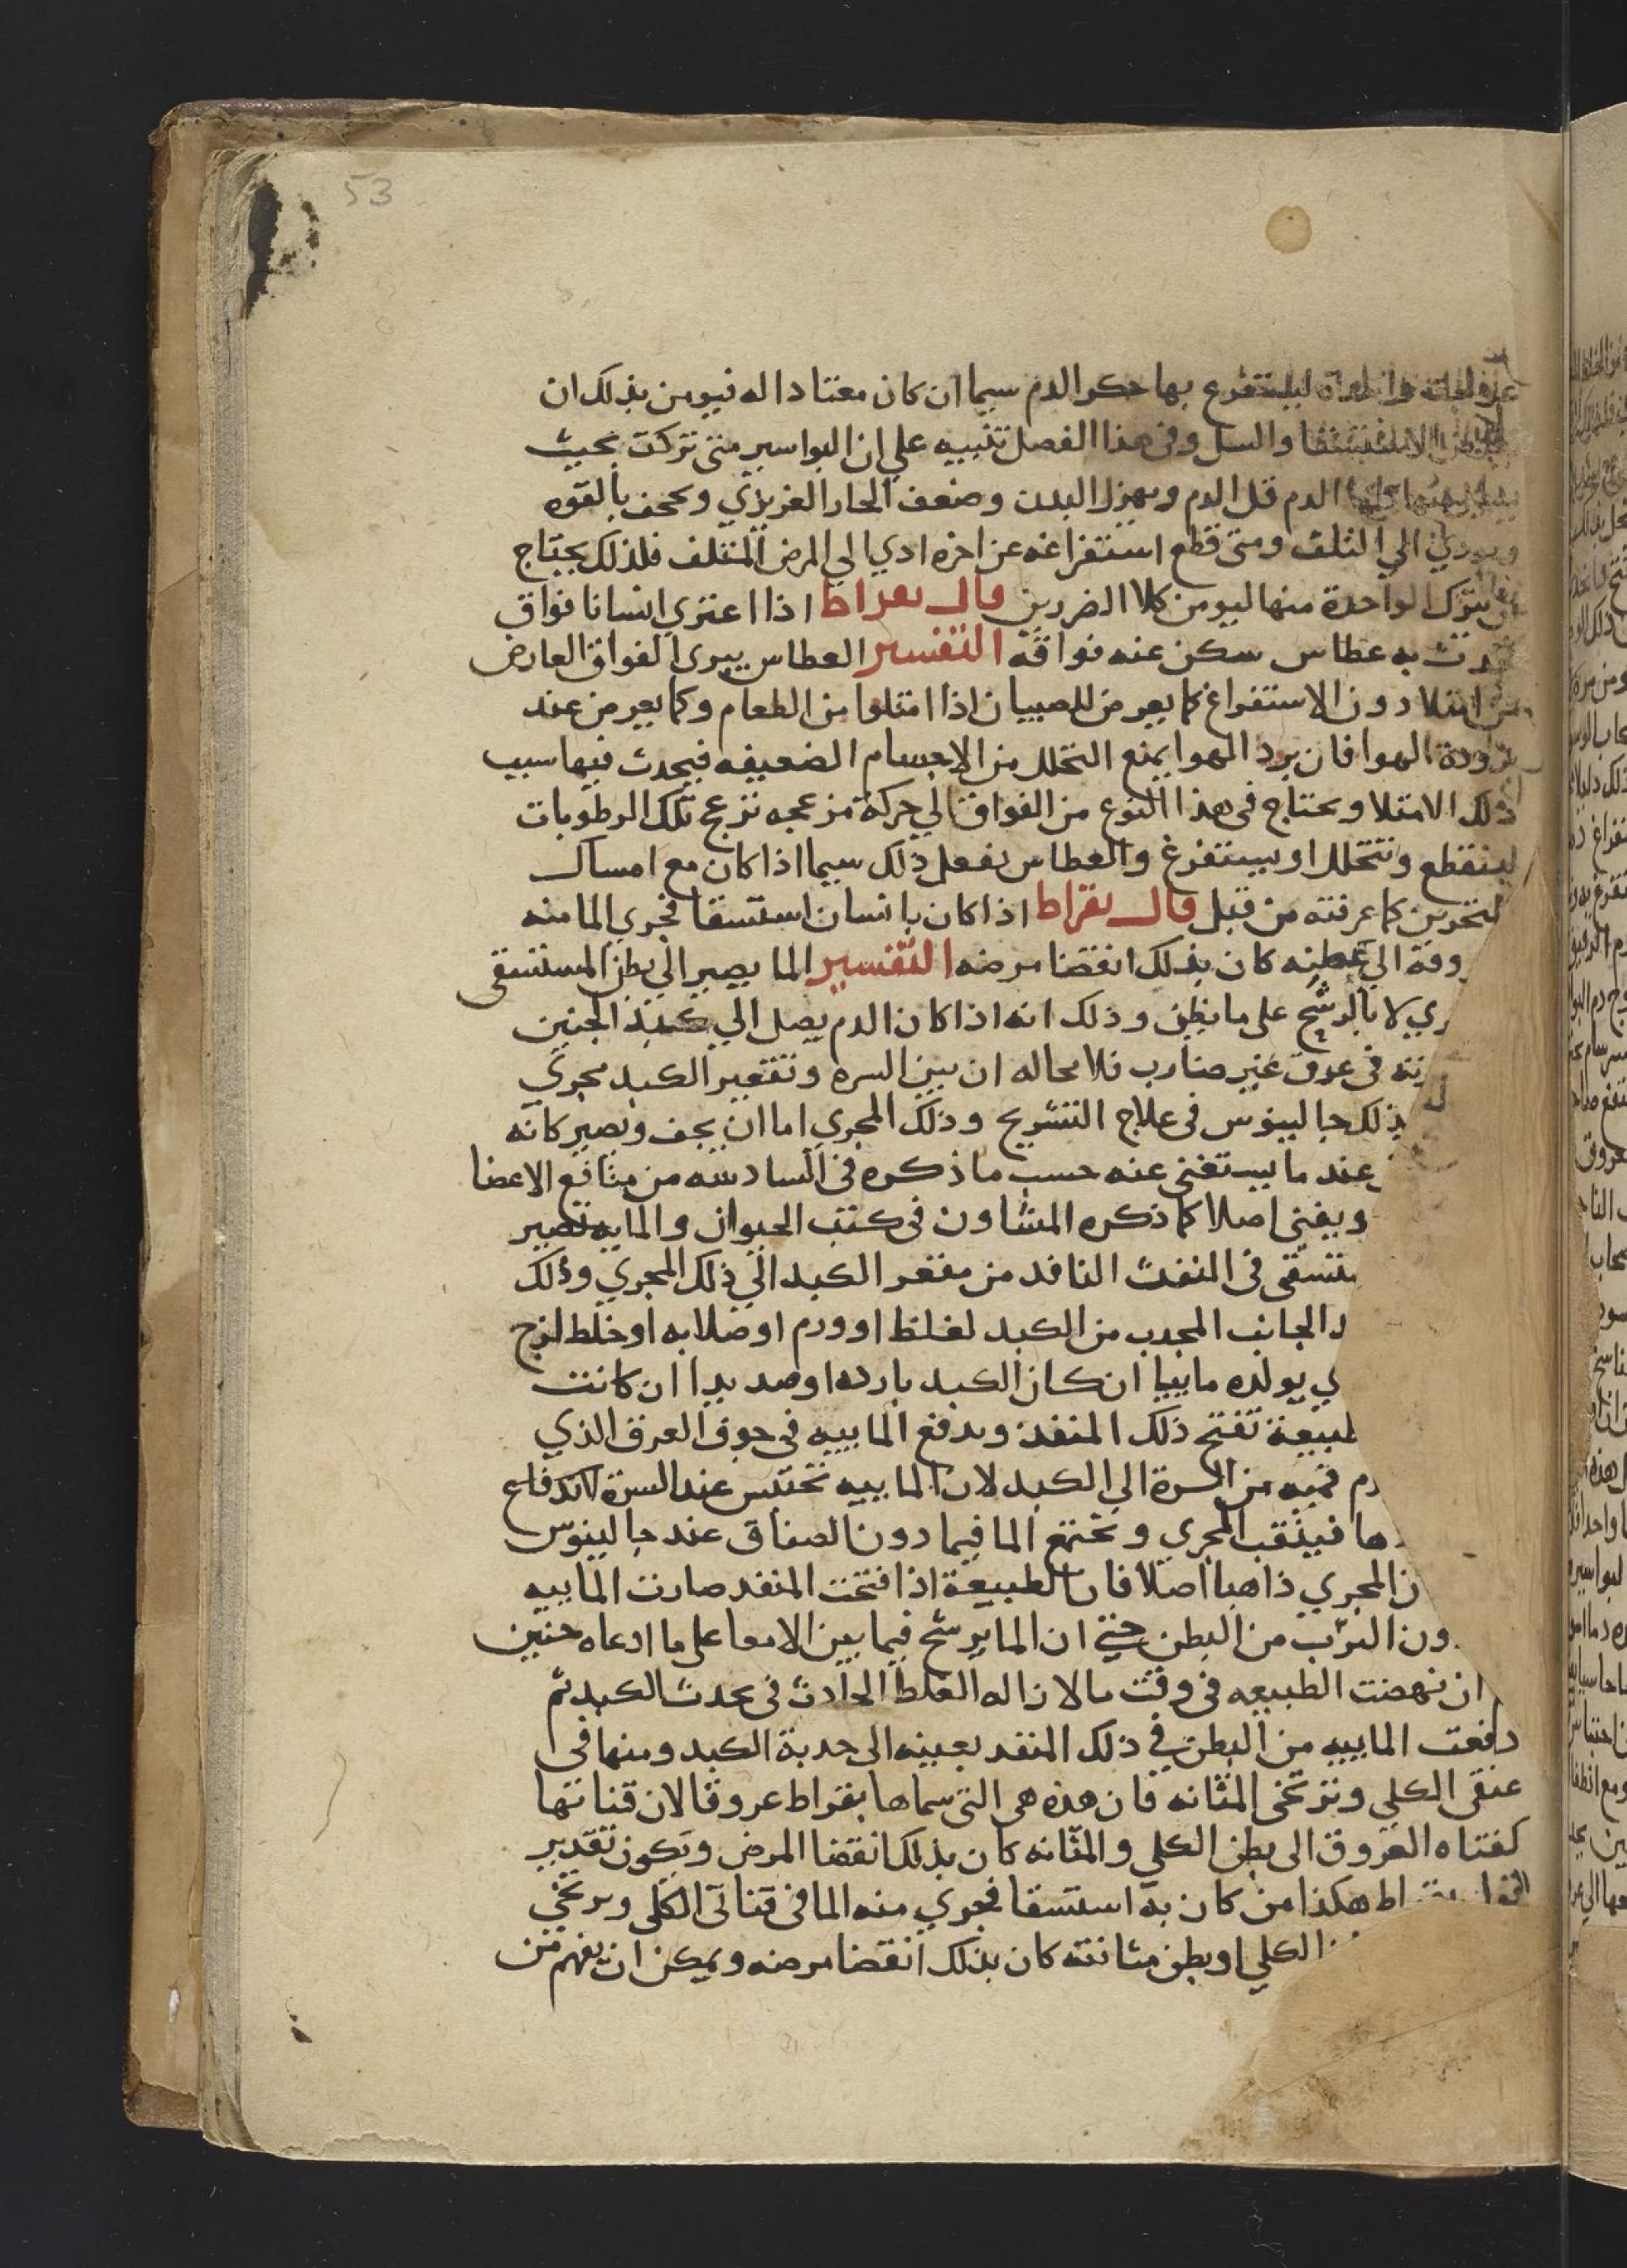 53
بها حكر الدم سيما ان كان معتادا له فيومن بذلك ان
والسل وفى هذا الفصل تنبيه علي ان البواسير متى تركت بحيث
الدم قل الدم ويهزل البدن وضعف الحار الغريزي ويجحف بالقوه
الي التلف ومتى قطع استفراغه عن اخره ادي الي المرض المتلف فلذلك يحتاج
ان يترك الواحدة منها ليومن كلا الضررين قال بقراط اذا اعتري انسانا فواق
به عطاس سكن عنه فواقه التفسير العطاس يبرى الفواق العارض
امتلا دون الاستفراغ كما يعرض للصبيان اذا امتلوا من الطعام وكما يعرض عند
برودة الهوا فان برد الهوا يمنع التحلل من الاجسام الضعيفه فيحدث فيها سبب
ذلك الامتلا ويحتاج فى هذا النوع من الفواق الي حركة مزعجه تزعج تلك الرطوبات
لينقطع وتتحلل او يستفرغ والعطاس يفعل ذلك سيما اذا كان مع امساك
لنخرين كما عرفته من قبل قال بقراط اذا كان بانسان استسقا فجري الما منه
روقه الي بطنه كان بذلك انقضا مرضه التفسير الما يصير الي بطن المستسقى
ري لا بالرشح على ما يظن وذلك انه اذا كان الدم يصل الي كبد الجنين
رته فى عرق غير ضارب فلا محاله ان بين السره وتقعير الكبد مجري
ذلك جالينوس فى علاج التشريح وذلك المجري اما ان يجف ويصير كانه
عند ما يستغنى عنه حسب ما ذكره فى السادسه من منافع الاعضا
ويفنى اصلا كما ذكره المشاون فى كتب الحيوان والمايه تصير
ستسقى فى المنفث النافد من مقعر الكبد الي ذلك المجري وذلك
د الجانب المحدب من الكبد لغلظ او ورم او صلابه او خلط لزج
ي يولده ماييا ان كان الكبد بارده او صديدا ان كانت
لطبيعة تفتح ذلك المنفذ ويدفع الماييه فى جوف العرق الذي
دم فيه من السرة الي الكبد لان الماييه تحتبس عند السرة لاندفاع
ها فينثقب المجري ويجتمع الما فيما دون الصفاق عند جالينوس
ن المجري ذاهبا اصلا فان الطبيعة اذا فتحت المنفد صارت الماييه
ون الثرب من البطن حتى ان الما يرشح فيما بين الامعا على ما ادعاه حنين
ان نهضت الطبيعه فى وقت ما لازاله الغلظ الحادث فى محدب الكبد ثم
دفعت الماييه من البطن في ذلك المنفد بعينه الى حدبة الكبد ومنها فى
عنقى الكلي وترتخى المثانه فان هذه هى التى سماها بقراط عروقا لان قناتها
كقناه العروق الى بطن الكلي والمثانه كان بذلك انقضا المرض ويكون تقدير
هكذا من كان به استسقا فجري منه الما فى قناتى الكلى وبرتخي
الكلي او بطن مثانته كان بذلك انقضا مرضه ويمكن ان يفهم من